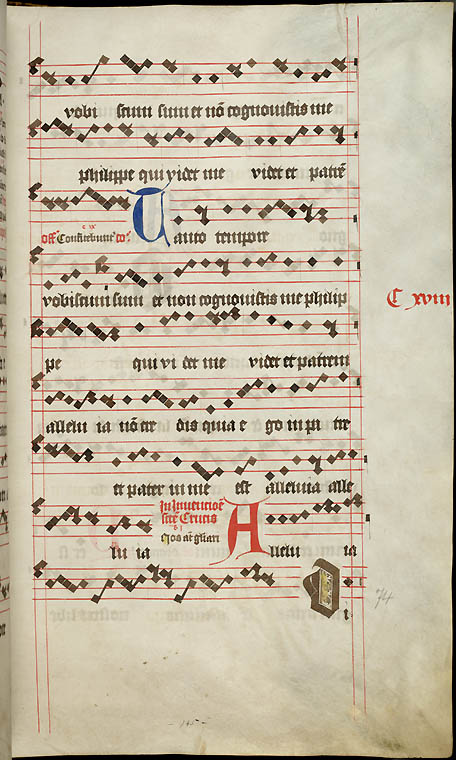 vobi scum sum et nō cognouistis me
philippe qui videt me videt et patrē
Off Confitebunt co
Tanto tempore
vobiscum sum et non cognouistis me philip
pe qui vi det me videt et patrem
allelu ia nō cre dis quia e go in pa tre
et pater in me est alleluia alle
In Inuentiōe
scē Crucis
Nos at gl̄iari
lu ia Allelu ia
C xviii
74
145